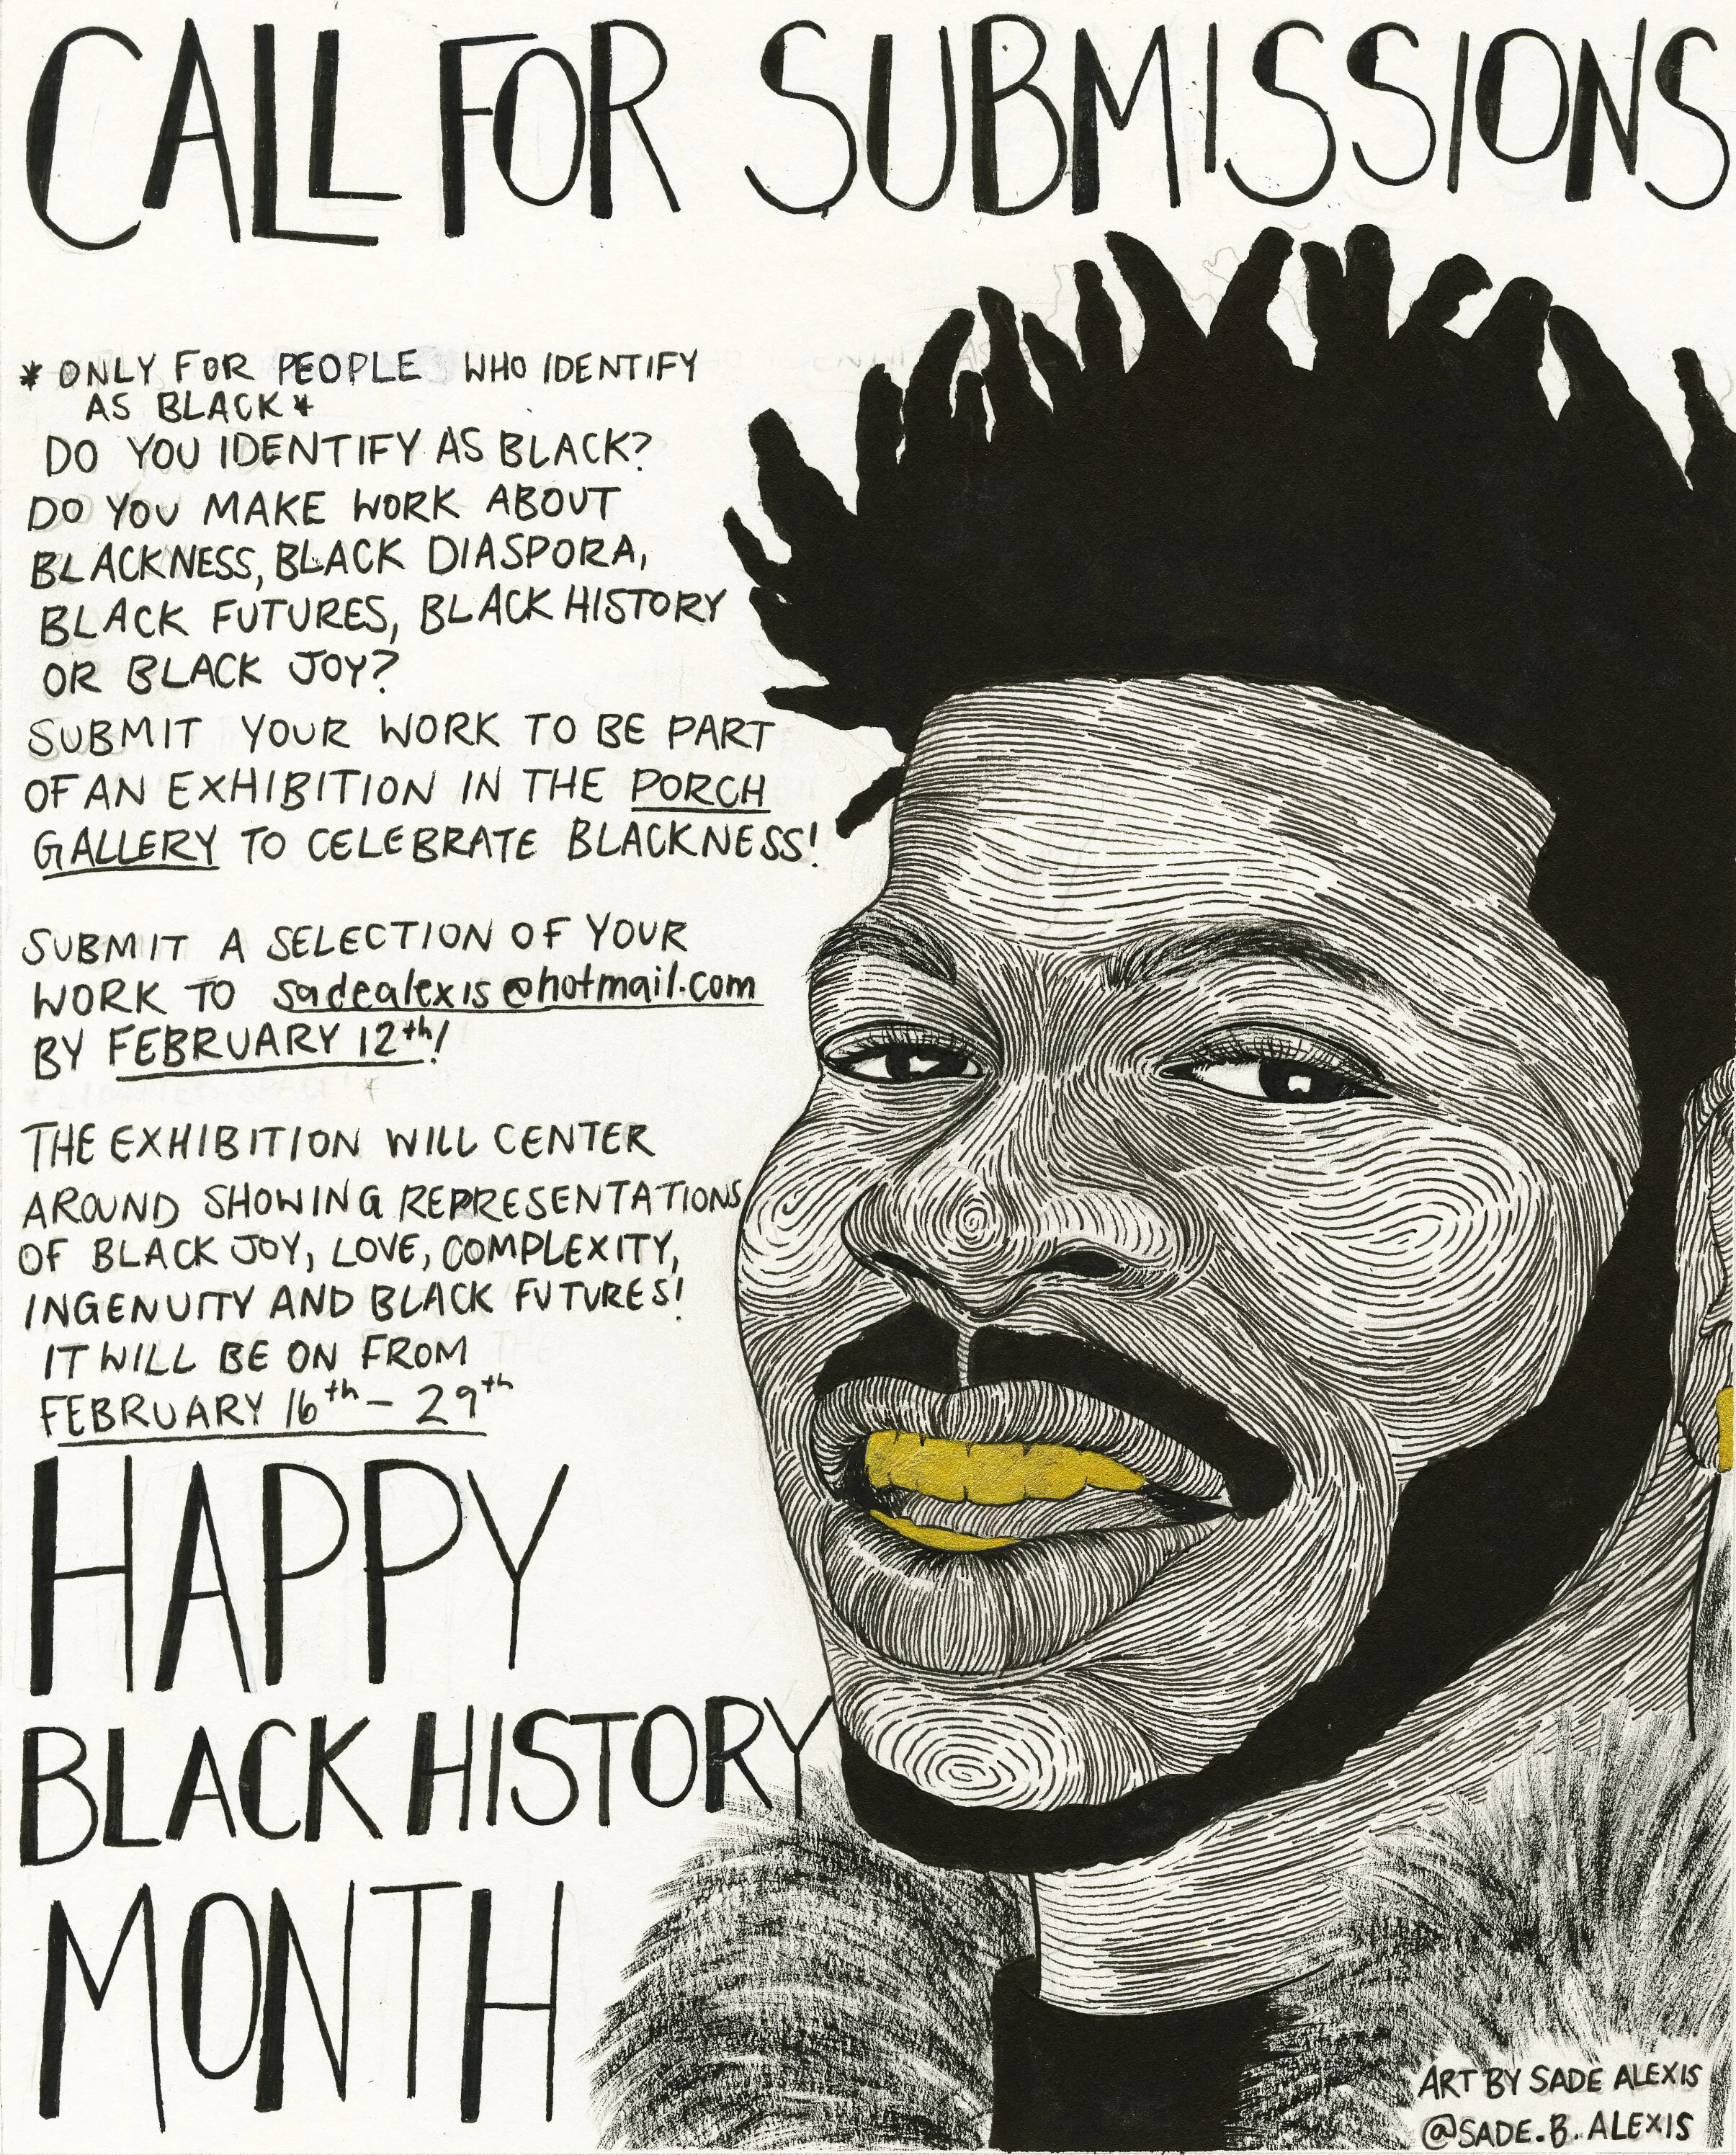 CALL FOR SUBMISSIONS
* ONLY FOR PEOPLE WHO IDENTIFY
AS BLACK *
DO YOU IDENTIFY AS BLACK?
DO YOU MAKE WORK ABOUT
BLACKNESS, BLACK DIASPORA,
BLACK FUTURES, BLACK HISTORY
OR BLACK JOY?
SUBMIT YOUR WORK TO BE PART
OF AN EXHIBITION IN THE PORCH
GALLERY TO CELEBRATE BLACKNESS!
SUBMIT A SELECTION OF YOUR
WORK TO sadealexis@hotmail.com
BY FEBRUARY 12th!
THE EXHIBITION WILL CENTER
AROUND SHOWING REPRESENTATIONS
OF BLACK JOY, LOVE, COMPLEXITY,
INGENUITY AND BLACK FUTURES!
IT WILL BE ON FROM
FEBRUARY 16th - 29th
HAPPY
BLACK HISTORY
MONTH
ART BY SADE ALEXIS
@SADE.B.ALEXIS